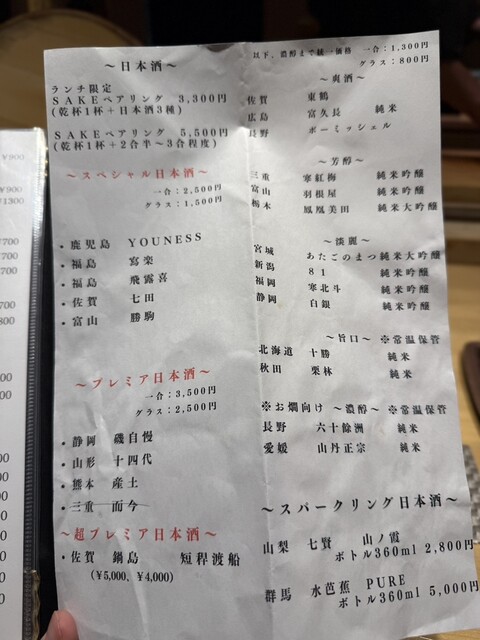 ～日本酒～
ランチ限定
ＳＡＫＥペアリング 3,300円
(乾杯1杯＋日本酒3種)
ＳＡＫＥペアリング 5,500円
(乾杯1杯＋2合半～3合程度)
～スペシャル日本酒～
一合：2,500円
グラス：1,500円
・鹿児島 YOUNESS
・福島 寫楽
・福島 飛露喜
・佐賀 七田
・富山 勝駒
～プレミア日本酒～
一合：3,500円
グラス：2,500円
・静岡 磯自慢
・山形 十四代
・熊本 産土
・三重 而今
～超プレミア日本酒～
・佐賀 鍋島 短稈渡船
(¥5,000、¥4,000)
以下、濃醇まで統一価格 一合：1,300円
グラス：800円
～爽酒～
佐賀 東鶴
広島 富久長 純米
長野 ボーミッシェル
～芳醇～
三重 寒紅梅 純米吟醸
富山 羽根屋 純米吟醸
栃木 鳳凰美田 純米大吟醸
～淡麗～
宮城 あたごのまつ 純米大吟醸
新潟 81 純米吟醸
福岡 寒北斗 純米吟醸
静岡 白銀 純米吟醸
～旨口～ ※常温保管
北海道 十勝 純米
秋田 栗林 純米
※お燗向け ～濃醇～ ※常温保管
長野 六十餘洲 純米
愛媛 山丹正宗 純米
～スパークリング日本酒～
山梨 七賢 山ノ霞
ボトル360ml 2,800円
群馬 水芭蕉 PURE
ボトル360ml 5,000円
¥900
¥900
¥1300
¥700